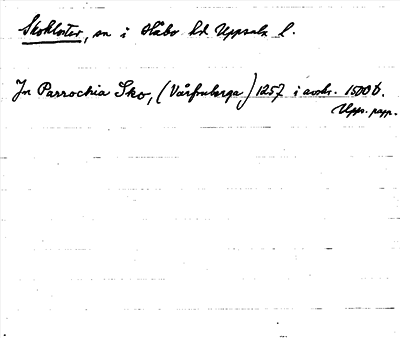 Skokloster, sn i Håbo hd Uppsala l.
In Parrochia Sko, (Vårfruberga) 1257 i avskr. 1500 t.
Upps. papp.